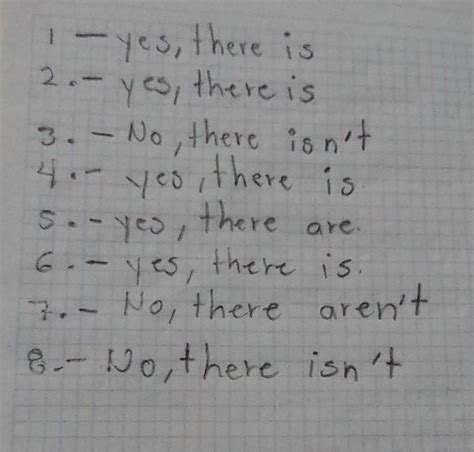 1 - yes, there is
2.- yes, there is
3. - No, there isn't
4.- yes, there is.
5.- yes, there are.
6.- yes, there is.
7.- No, there aren't
8.- No, there isn't